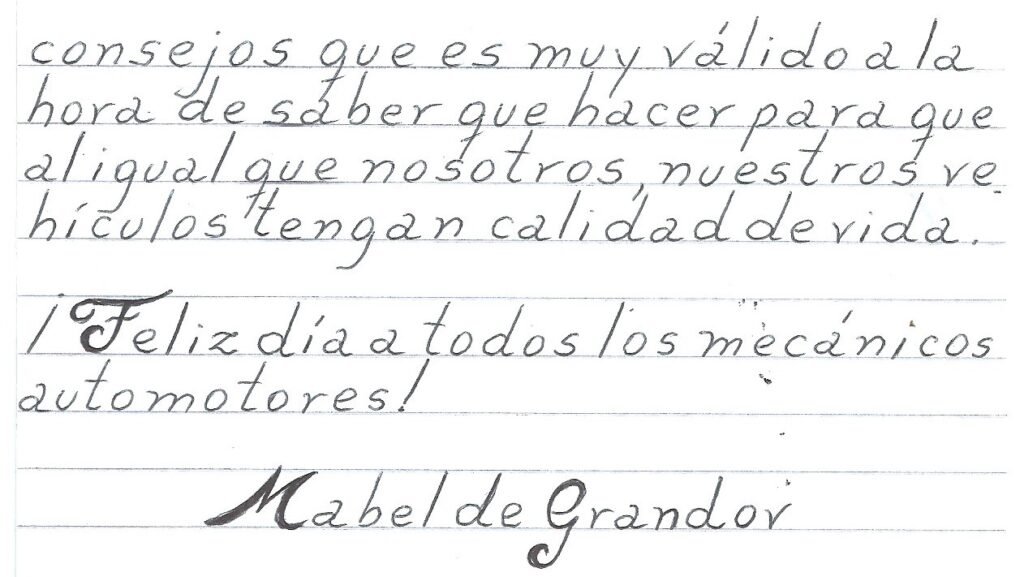 consejos que es muy válido a la
hora de saber que hacer para que
al igual que nosotros, nuestros ve-
hículos tengan calidad de vida.
¡Feliz día a todos los mecánicos
automotores!
Mabel de Grandov